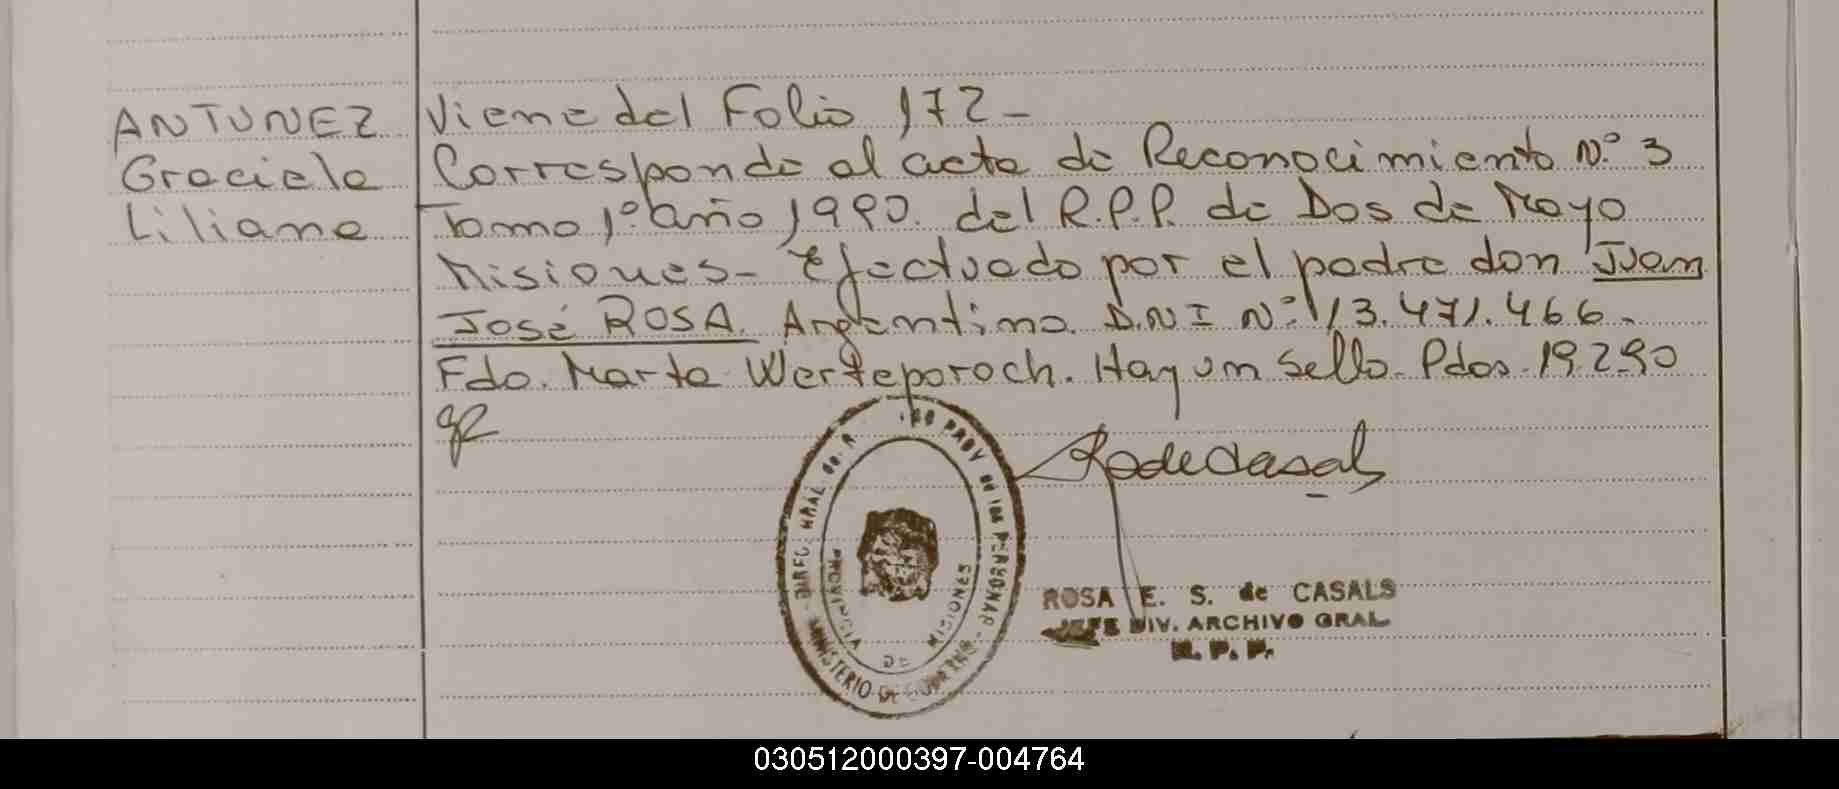 ANTUNEZ
Graciela
Liliana
Viene del Folio 172-
Corresponde al acta de Reconocimiento N.º 3
Tomo 1º año 1990. del R.P.P. de Dos de Mayo
Misiones- Efectuado por el padre don Juan
José ROSA. Argentino. D.N I Nº 13.471.466-
Fdo. Marta Werteporoch. Hay un sello- Pdas- 19.2.90
DIREC. GRAL DE. R. PROV DE LAS PERSONAS
MINISTERIO DE GOBIERNO
PROVINCIA DE MISIONES
RodeCasals
ROSA E. S. de CASALS
JEFE DIV. ARCHIVO GRAL.
R. P. P.
030512000397-004764